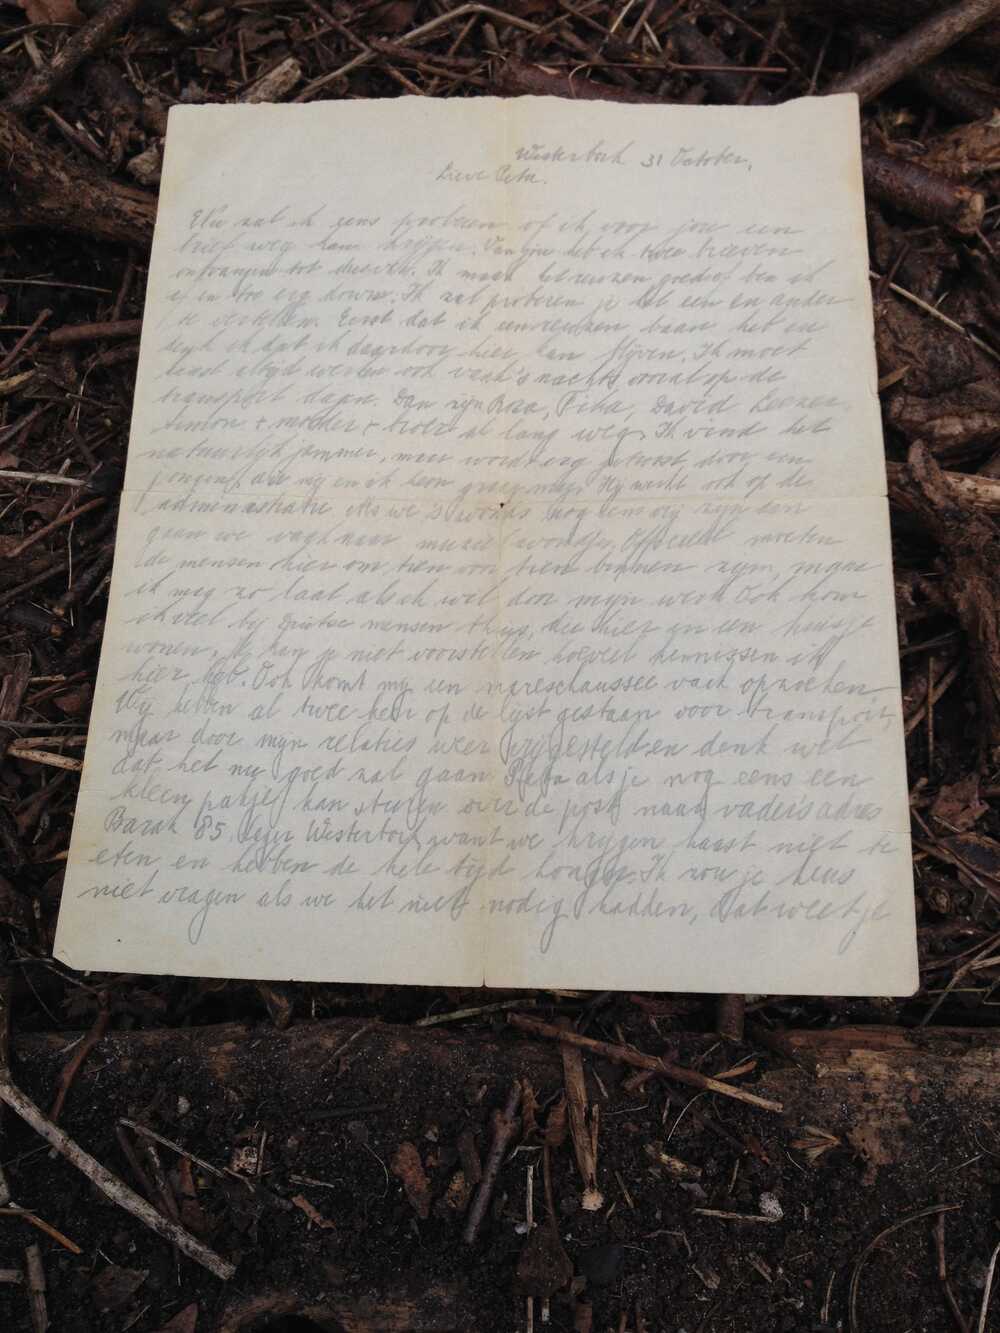 Westerbork 31 October,
Lieve Peta.
Nu zal ik eens proberen of ik voor jou een
brief weg kan krijgen. Van jou heb ik twee brieven
ontvangen tot dusver. Ik maak het reuzen goed of ben ik
af en toe erg down. Ik zal proberen je het een en ander
te vertellen. Eerst dat ik een reuzen baan heb en
denk ik dat ik daardoor hier kan blijven. Ik moet
haast altijd werken ook vaak 's nachts vooral op de
transport dagen. Dan zijn Roza, Fita, David Leezer,
Simon + moeder + broer al lang weg. Ik vind het
natuurlijk jammer, maar word erg getroost door een
jongen, die mij en ik hem graag mag. Hij werkt ook op de
administratie Als we 's avonds nog vrij zijn dan
gaan we vaak naar muziek avondjes. Officieel moeten
de mensen hier om tien voor tien binnen zijn, maar
ik mag zo laat als ik wil door mijn werk Ook kom
ik veel bij Duitse mensen thuis, die hier in een huisje
wonen. Jij kan je niet voorstellen hoeveel kennissen ik
hier heb. Ook komt mij een mareschaussee vaak opzoeken
Wij hebben al twee keer op de lijst gestaan voor transport,
maar door mijn relaties weer vrijgesteld en denk wel
dat het nu goed zal gaan Peta als je nog eens een
klein pakje kan sturen over de post naar vaders adres
Barak 85 Lager Westerbork, want we krijgen haast niet te
eten en hebben de hele tijd honger. Ik zou je heus
niet vragen als we het niet nodig hadden, dat weet je